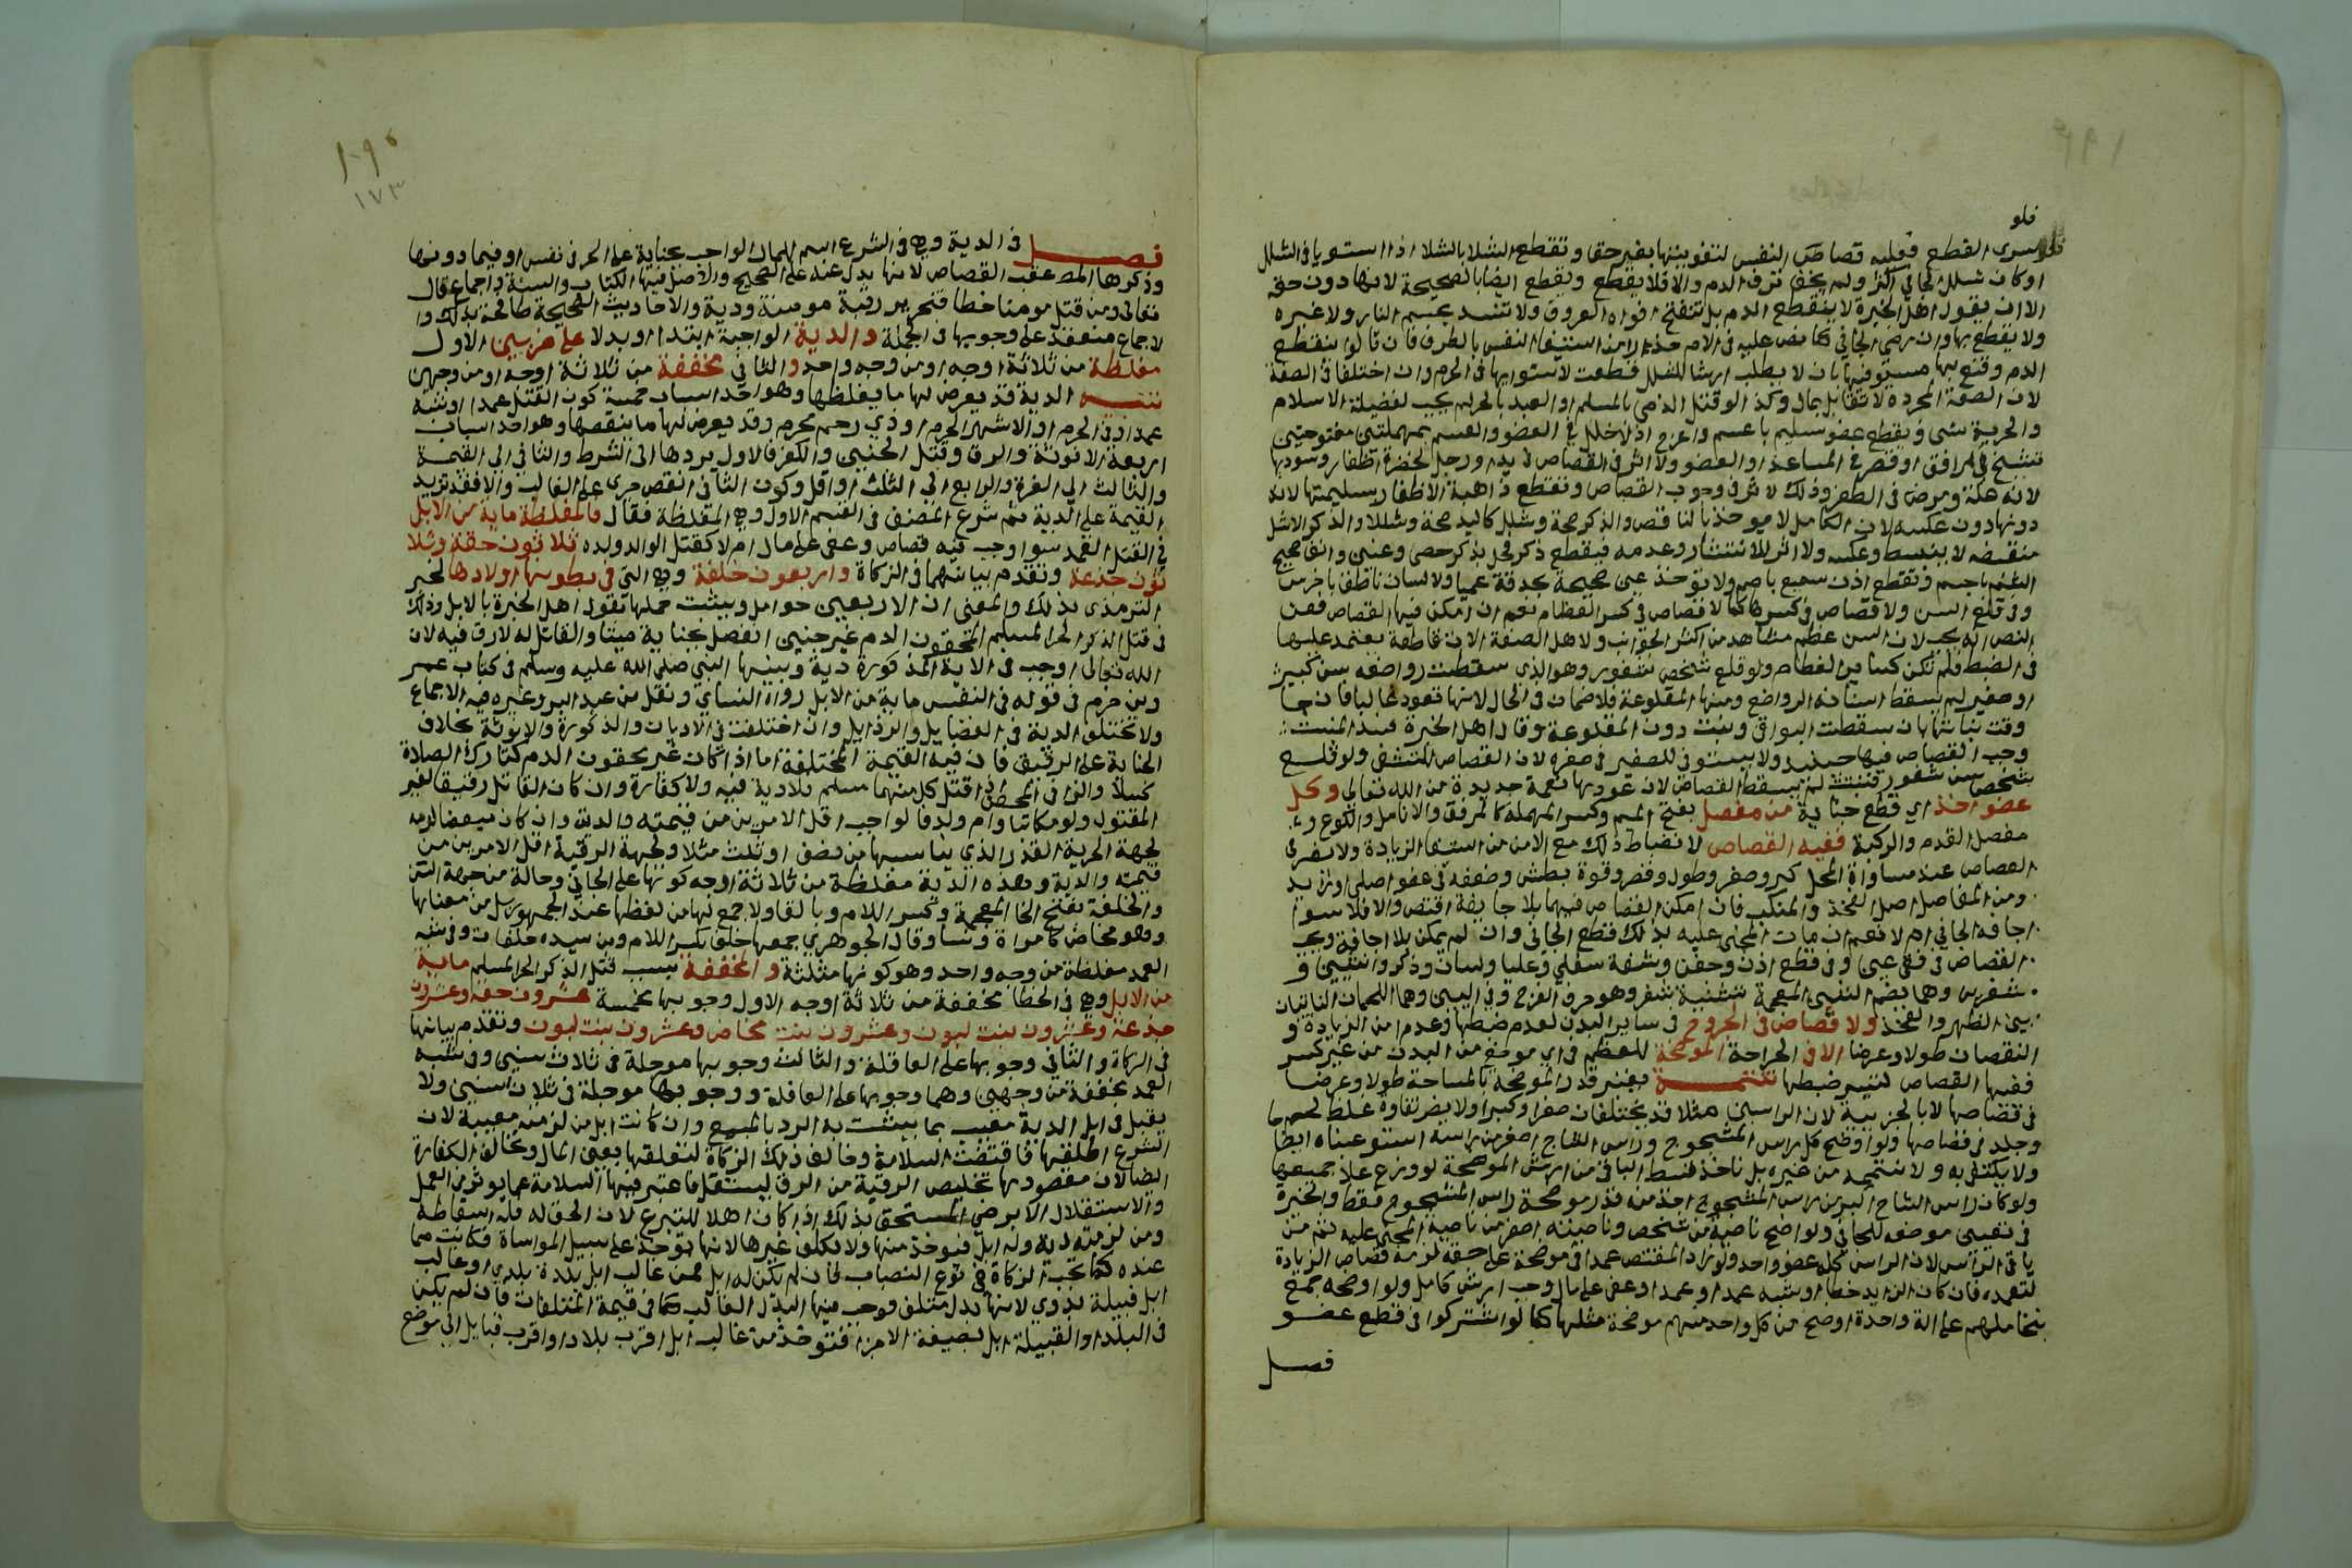 ١٩٤
فلو
سرى القطع فعليه قصاص النفس لتفويتها بغير حق وتقطع الشلا بالشلا اذا استويا في الشلل
او كان شلل الجاني اكثر ولم يخف نزف الدم والا فلا يقطع ويقطع ايضا بالصحيحة لانها دون حقه
الا ان يقول اهل الخبرة لا ينقطع الدم بل تنفتح افواه العروق ولا تنسد بحسم النار ولا غيره
ولا يقطع بها وان رضي الجاني كما نص عليه في الام حذرا من استيفا النفس بالطرف فان قالوا ينقطع
الدم وقنع بها مستوفيها بان لا يطلب ارشا للشلل قطعت لاستوايهما في الجرم وان اختلفا في الصفة
لان الصفة المجردة لا تقابل بمال وكذا لو قتل الذمي بالمسلم او العبد بالحر لم يجب لفضيلة الاسلام
والحرية شي ويقطع عضو سليم باعسم واعرج اذ لا خلل في العضو والعسم بمهملتين مفتوحتين
تشنج في المرافق او قصر في الساعد او العضو ولا اثر في القصاص في يد او رجل لخضرة اظفار وسودها
لانه علة ومرض في الظفر وذلك لا يؤثر في وجوب القصاص وتقطع ذاهبة الاظفار بسليمتها لانها
دونها دون عكسه لان الكامل لا يوخذ بالناقص والذكر صحة وشلل كاليد صحة وشللا والذكر الاشل
منقبض لا ينبسط وعكسه ولا اثر للانتشار وعدمه فيقطع ذكر فحل بذكر خصي وعنين وانف صحيح
الشم باخشم وتقطع اذن سميع باصم ولا توخذ عين صحيحة بحدقة عميا ولا لسان ناطق باخرس
وفي قلع السن ولا قصاص في كسرها كما لا قصاص في كسر العظام نعم ان امكن فيها القصاص فعن
النص انه يجب لان السن عظم مشاهد من اكثر الجوانب ولاهل الصنعة الات قاطعة يعتمد عليها
في الضبط فلم تكن كساير العظام ولو قلع شخص مثغور وهو الذي سقطت رواضعه سن كبير
او صغير لم يسقط اسنانه الرواضع ومنها المقلوعة فلا ضمان في الحال لانها تعود غالبا فان جا
وقت نباتها بان سقطت البواقي ونبت دون المقلوعة وقال اهل الخبرة فسد المنبت
وجب القصاص فيها حينئذ ولا يستوفى للصغير في صغره لان القصاص للتشفي ولو قلع
شخص سن مثغور فنبتت لم يسقط القصاص لان عودها نعمة جديدة من الله تعالى وكل
عضو اخذ اي قطع جناية من مفصل بفتح الميم وكسر المهملة كالمرفق والانامل والكوع و
مفصل القدم والركبة ففيه القصاص لانضباط ذلك مع الامن من استيفا الزيادة ولا يضر في
القصاص عند مساواة المحل كبر وصغر وطول وقصر وقوة بطش وضعفه في عضو اصلي او زايد
ومن المفاصل اصل الفخذ والمنكب فان امكن القصاص فيهما بلا جايفة اقتص والا فلا سوا
اجافه الجاني ام لا نعم ان مات المجني عليه بذلك قطع الجاني وان لم يمكن بلا اجافة ويجب
القصاص في فقي عين وفي قطع اذن وجفن وشفة سفلي وعليا ولسان وذكر وانثيين و
شفرين وهما بضم الشين المعجمة تثنية شفر وهو حرف الفرج وفي اليين وهما اللحمان الناتيان
بين الظهر والفخذ ولا قصاص في الجروح في ساير البدن لعدم ضبطها وعدم امن الزيادة و
النقصان طولا وعرضا الا في الجراحة الموضحة للعظم في اي موضع من البدن من غير كسر
ففيها القصاص لتيسر ضبطها تتمة يعتبر قدر الموضحة بالمساحة طولا وعرضا
في قصاصها لا بالجزيية لان الراسين مثلا قد يختلفان صغرا وكبرا ولا يضر تفاوت غلظ لحم
وجلد في قصاصها ولو اوضح كل راس المشجوج وراس الشاج اصغر من راسه استوعبناه ايضاحا
ولا يكتفى به ولا نتممه من غيره بل ناخذ قسط الباقي من ارش الموضحة لو وزع على جميعها
ولو كان راس الشاج اكبر من راس المشجوج اخذ منه قدر موضحة راس المشجوج فقط والخيرة
في تعيين موضعه للجاني ولو اوضح ناصية من شخص وناصيته اصغر من ناصية المجني عليه تمم من
باقي الراس لان الراس كله عضو واحد ولو زاد المقتص عمدا في موضحة على حقه لزمه قصاص الزيادة
لتعمده فان كان الزايد خطا او شبه عمد او عمدا وعفي على مال وجب ارش كامل ولو اوضحه جمع
بتحاملهم على الة واحدة اوضح من كل واحد منهم موضحة مثلها كما لو اشتركوا في قطع عضو
فصل
١٩٥
١٧٣
فصل في الدية وهي في الشرع اسم للمال الواجب بجناية على الحر في نفس او فيما دونها
وذكرها المص عقب القصاص لانها بدل عنه على الصحيح والاصل فيها الكتاب والسنة والاجماع قال
تعالى ومن قتل مومنا خطا فتحرير رقبة مومنة ودية والاحاديث الصحيحة طافحة بذلك وا
لاجماع منعقد على وجوبها في الجملة والدية الواجبة ابتدا او بدلا على ضربين الاول
مغلظة من ثلاثة اوجه او من وجه واحد والثاني مخففة من ثلاثة اوجه او من وجهين
تنبيه الدية قد يعرض لها ما يغلظها وهو احد اسباب خمسة كون القتل عمدا او شبه
عمد او في الحرم او الاشهر الحرم او ذي رحم محرم وقد يعرض لها ما ينقصها وهو احد اسباب
اربعة الانوثة والرق وقتل الجنين والكفر فالاول يردها الى الشطر والثاني الى القيمة
والثالث الى الغرة والرابع الى الثلث او اقل وكون الثاني انقص جرى على الغالب والا فقد تزيد
القيمة على الدية ثم شرع المصنف في القسم الاول وهي المغلظة فقال فالمغلظة ماية من الابل
في القتل العمد سوا وجب فيه قصاص وعفي على مال ام لا كقتل الوالد ولده ثلاثون حقة وثلا
ثون جذعة وتقدم بيانهما في الزكاة واربعون خلفة وهي التي في بطونها اولادها لخبر
الترمذي بذلك والمعنى ان الاربعين حوامل ويثبت حملها بقول اهل الخبرة بالابل وذلك
في قتل الذكر الحر المسلم المحقون الدم غير جنين انفصل بجناية ميتا والقاتل له لا رق فيه لان
الله تعالى اوجب في الاية المذكورة دية وبينها النبي صلى الله عليه وسلم في كتاب عمر
وبن حزم في قوله في النفس ماية من الابل رواه النساي ونقل بن عبد البر وغيره فيه الاجماع
ولا تختلف الدية في الفضايل والرذايل وان اختلفت في الاديان والذكورة والانوثة بخلاف
الجناية على الرقيق فان فيه القيمة المختلفة اما اذا كان غير محقون الدم كتارك الصلاة
كسلا والزاني المحصن اذا قتل كل منهما مسلم فلا دية فيه ولا كفارة وان كان القاتل رقيقا لغير
المقتول ولو مكاتبا وام ولد فالواجب اقل الامرين من قيمته والدية وان كان مبعضا لزمه
لجهة الحرية القدر الذي يناسبها من نصف او ثلث مثلا ولجهة الرقية اقل الامرين من
قيمته والدية وهذه الدية مغلظة من ثلاثة اوجه كونها على الجاني وحالة ومن جهة السن
والخلفة بفتح الخا المعجمة وكسر اللام وبالفا ولا جمع لها من لفظها عند الجمهور بل من معناها
وهو مخاض كامراة ونسا وقال الجوهري جمعها خلف بكسر اللام وبن سيده خلفات وفي شبه
العمد مغلظة من وجه واحد وهو كونها مثلثة والمخففة بسبب قتل الذكر الحر المسلم ماية
من الابل وهي في الخطا مخففة من ثلاثة اوجه الاول وجوبها مخمسة عشرون حقة وعشرون
جذعة وعشرون بنت لبون وعشرون بنت مخاض وعشرون بنت لبون وتقدم بيانها
في الزكاة والثاني وجوبها على العاقلة والثالث وجوبها موجلة في ثلاث سنين وفي شبه
العمد مخففة من وجهين وهما وجوبها على العاقلة ووجوبها موجلة في ثلاث سنين ولا
يقبل في ابل الدية معيب بما يثبت به الرد بالمبيع وان كانت ابل من لزمته معيبة لان
الشرع اطلقها فاقتضت السلامة وخالف ذلك الزكاة لتعلقها بعين المال وتخالف الكفارة
ايضا لان مقصودها تخليص الرقبة من الرق ليستقل فاعتبر فيها السلامة عما يوثر في العمل
والاستقلال الا برضى المستحق بذلك اذا كان اهلا للتبرع لان الحق له فله اسقاطه
ومن لزمته دية وله ابل فتوخذ منها ولا يكلف غيرها لانها توخذ على سبيل المواساة فكانت مما
عنده كما تجب الزكاة في نوع النصاب فان لم يكن له ابل فمن غالب ابل بلدة بلدي او غالب
ابل قبيلة بدوي لانها بدل متلف فوجب فيها البدل الغالب كما في قيمة المتلفات فان لم يكن
في البلد او القبيلة ابل بصفة الاجزا فتوخذ من غالب ابل اقرب بلاد او اقرب قبايل الى موضع